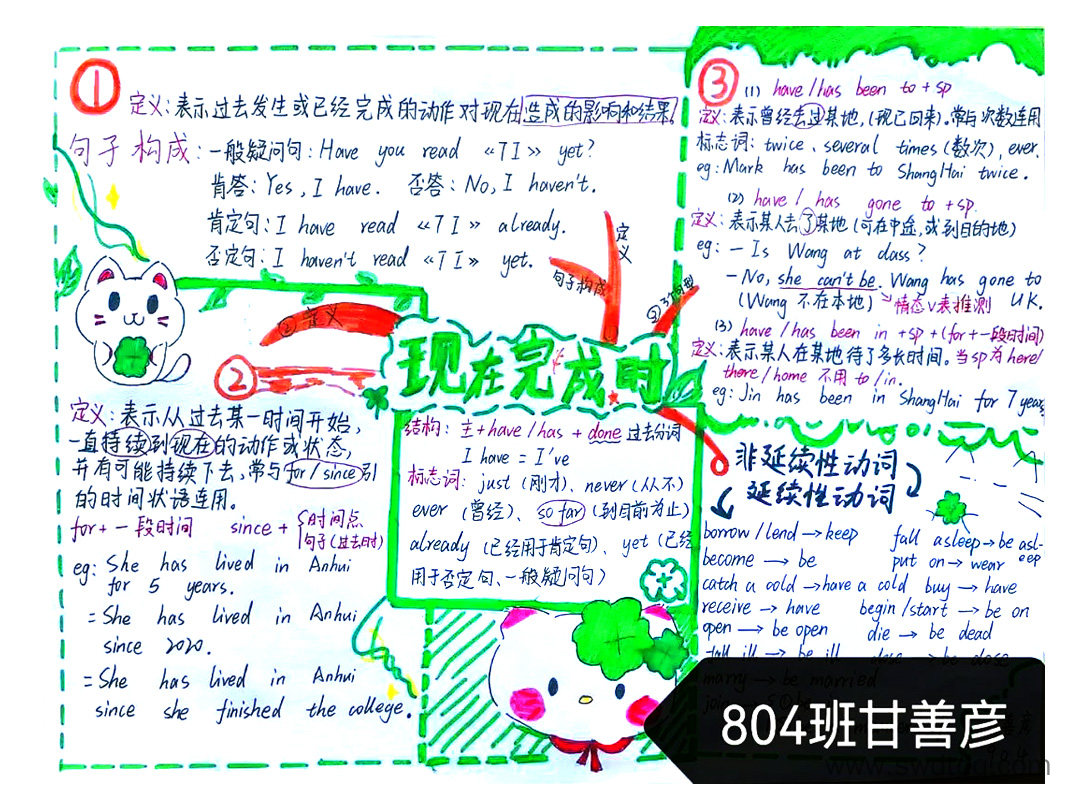 ①
定义:表示过去发生或已经完成的动作对现在造成的影响和结果
句子构成:一般疑问句:Have you read 《TI》 yet?
肯答:Yes, I have. 否答:No, I haven't.
肯定句:I have read 《TI》 already.
否定句:I haven't read 《TI》 yet.
② 定义
句子构成
定义
②
定义:表示从过去某一时间开始,
一直持续到现在的动作或状态,
并有可能持续下去,常与for/since引
的时间状语连用。
for+一段时间 since+ 时间点
句子(过去时)
eg: She has lived in Anhui
for 5 years.
=She has lived in Anhui
since 2020.
=She has lived in Anhui
since she finished the college.
现在完成时
结构:主+have/has+done过去分词
I have = I've
标志词:just(刚才)、never(从不)
ever(曾经)、so far(到目前为止)
already(已经用于肯定句)、yet(已经
用于否定句、一般疑问句)
③ (1) have/has been to+sp
定义:表示曾经去过某地,(现已回来)。常与次数连用
标志词:twice、several times(数次),ever.
eg:Mark has been to ShangHai twice.
(2) have/has gone to+sp.
定义:表示某人去了某地(可在中途,或到目的地)
eg:—Is Wang at dass?
—No, she can't be. Wang has gone to
(Wang不在本地) 情态v表推测 UK.
(3) have/has been in+sp+(for+一段时间)
定义:表示某人在某地待了多长时间。当sp为here/
there/home 不用to/in.
eg:Jin has been in ShangHai for 7 years
非延续性动词
延续性动词
borrow/lend→keep fall asleep→be asl-
become→be put on→wear eep
catch a cold→have a cold buy→have
receive→have begin/start→be on
open→be open die→be dead
fall ill→be ill
marry→be married
804班甘善彦